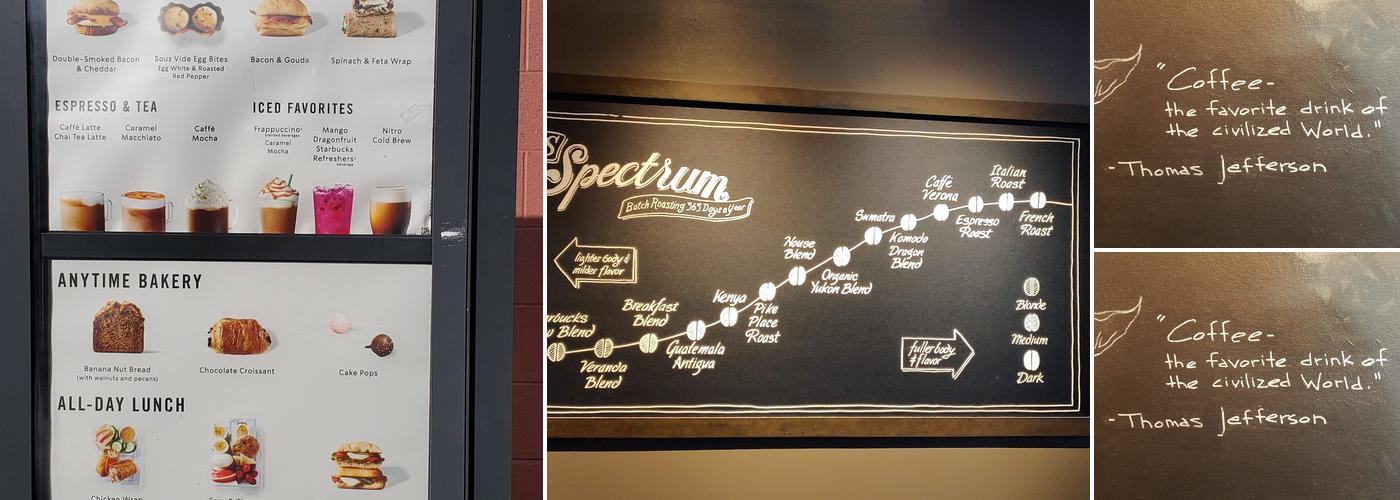 Double-Smoked Bacon
& Cheddar
Sous Vide Egg Bites
Egg White & Roasted
Red Pepper
Bacon & Gouda
Spinach & Feta Wrap
ESPRESSO & TEA
ICED FAVORITES
Caffè Latte
Chai Tea Latte
Caramel
Macchiato
Caffè
Mocha
Frappuccino®
blended beverages
Caramel
Mocha
Mango
Dragonfruit
Starbucks
Refreshers®
beverage
Nitro
Cold Brew
ANYTIME BAKERY
Banana Nut Bread
(with walnuts and pecans)
Chocolate Croissant
Cake Pops
ALL-DAY LUNCH
Chicken Wrap
Spectrum
Batch Roasting 365 Days a Year
lighter body &
milder flavor
Blend
Veranda
Blend
Breakfast
Blend
Guatemala
Antigua
Kenya
Pike
Place
Roast
House
Blend
Organic
Yukon Blend
Sumatra
Komodo
Dragon
Blend
Caffè
Verona
Espresso
Roast
Italian
Roast
French
Roast
fuller body
& flavor
Blonde
Medium
Dark
"Coffee-
the favorite drink of
the civilized World."
-Thomas Jefferson
"Coffee-
the favorite drink of
the civilized World."
-Thomas Jefferson